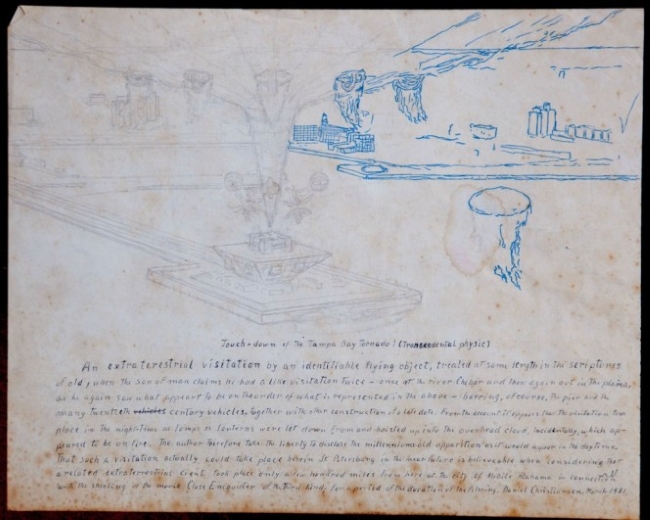 Touch-down of the Tampa Bay Tornado! (Transcendental physic)
An extraterestrial visitation by an identifiable flying object, treated at some length in the scriptures
of old, when the son of man claims he had a like visitation twice - once at the river Chebar and then again out in the plains,
as he again saw what appears to be on the order of what is represented in the above - barring, of course, the pier and the
many twentieth vehicles century vehicles, together with other construction of a late date. From the account it appears that the visitation took
place in the night-time as lamps or lanterns were let down from and hoisted up into the overhead cloud, incidentaly, which ap-
peared to be on fire. The author therefore take the liberty to disclose the millenniums old apparition as it would appear in the daytime.
That such a visitation actually could take place herein St. Petersburg in the near future is believeable when considering that
a related extraterestrial event took place only a few hundred miles from here at the city of Mobile Alabama in connection
with the shooting of the movie Close Encounter of the Third Kind, for a period of the duration of the filming. Daniel Christiansen, March 1981.